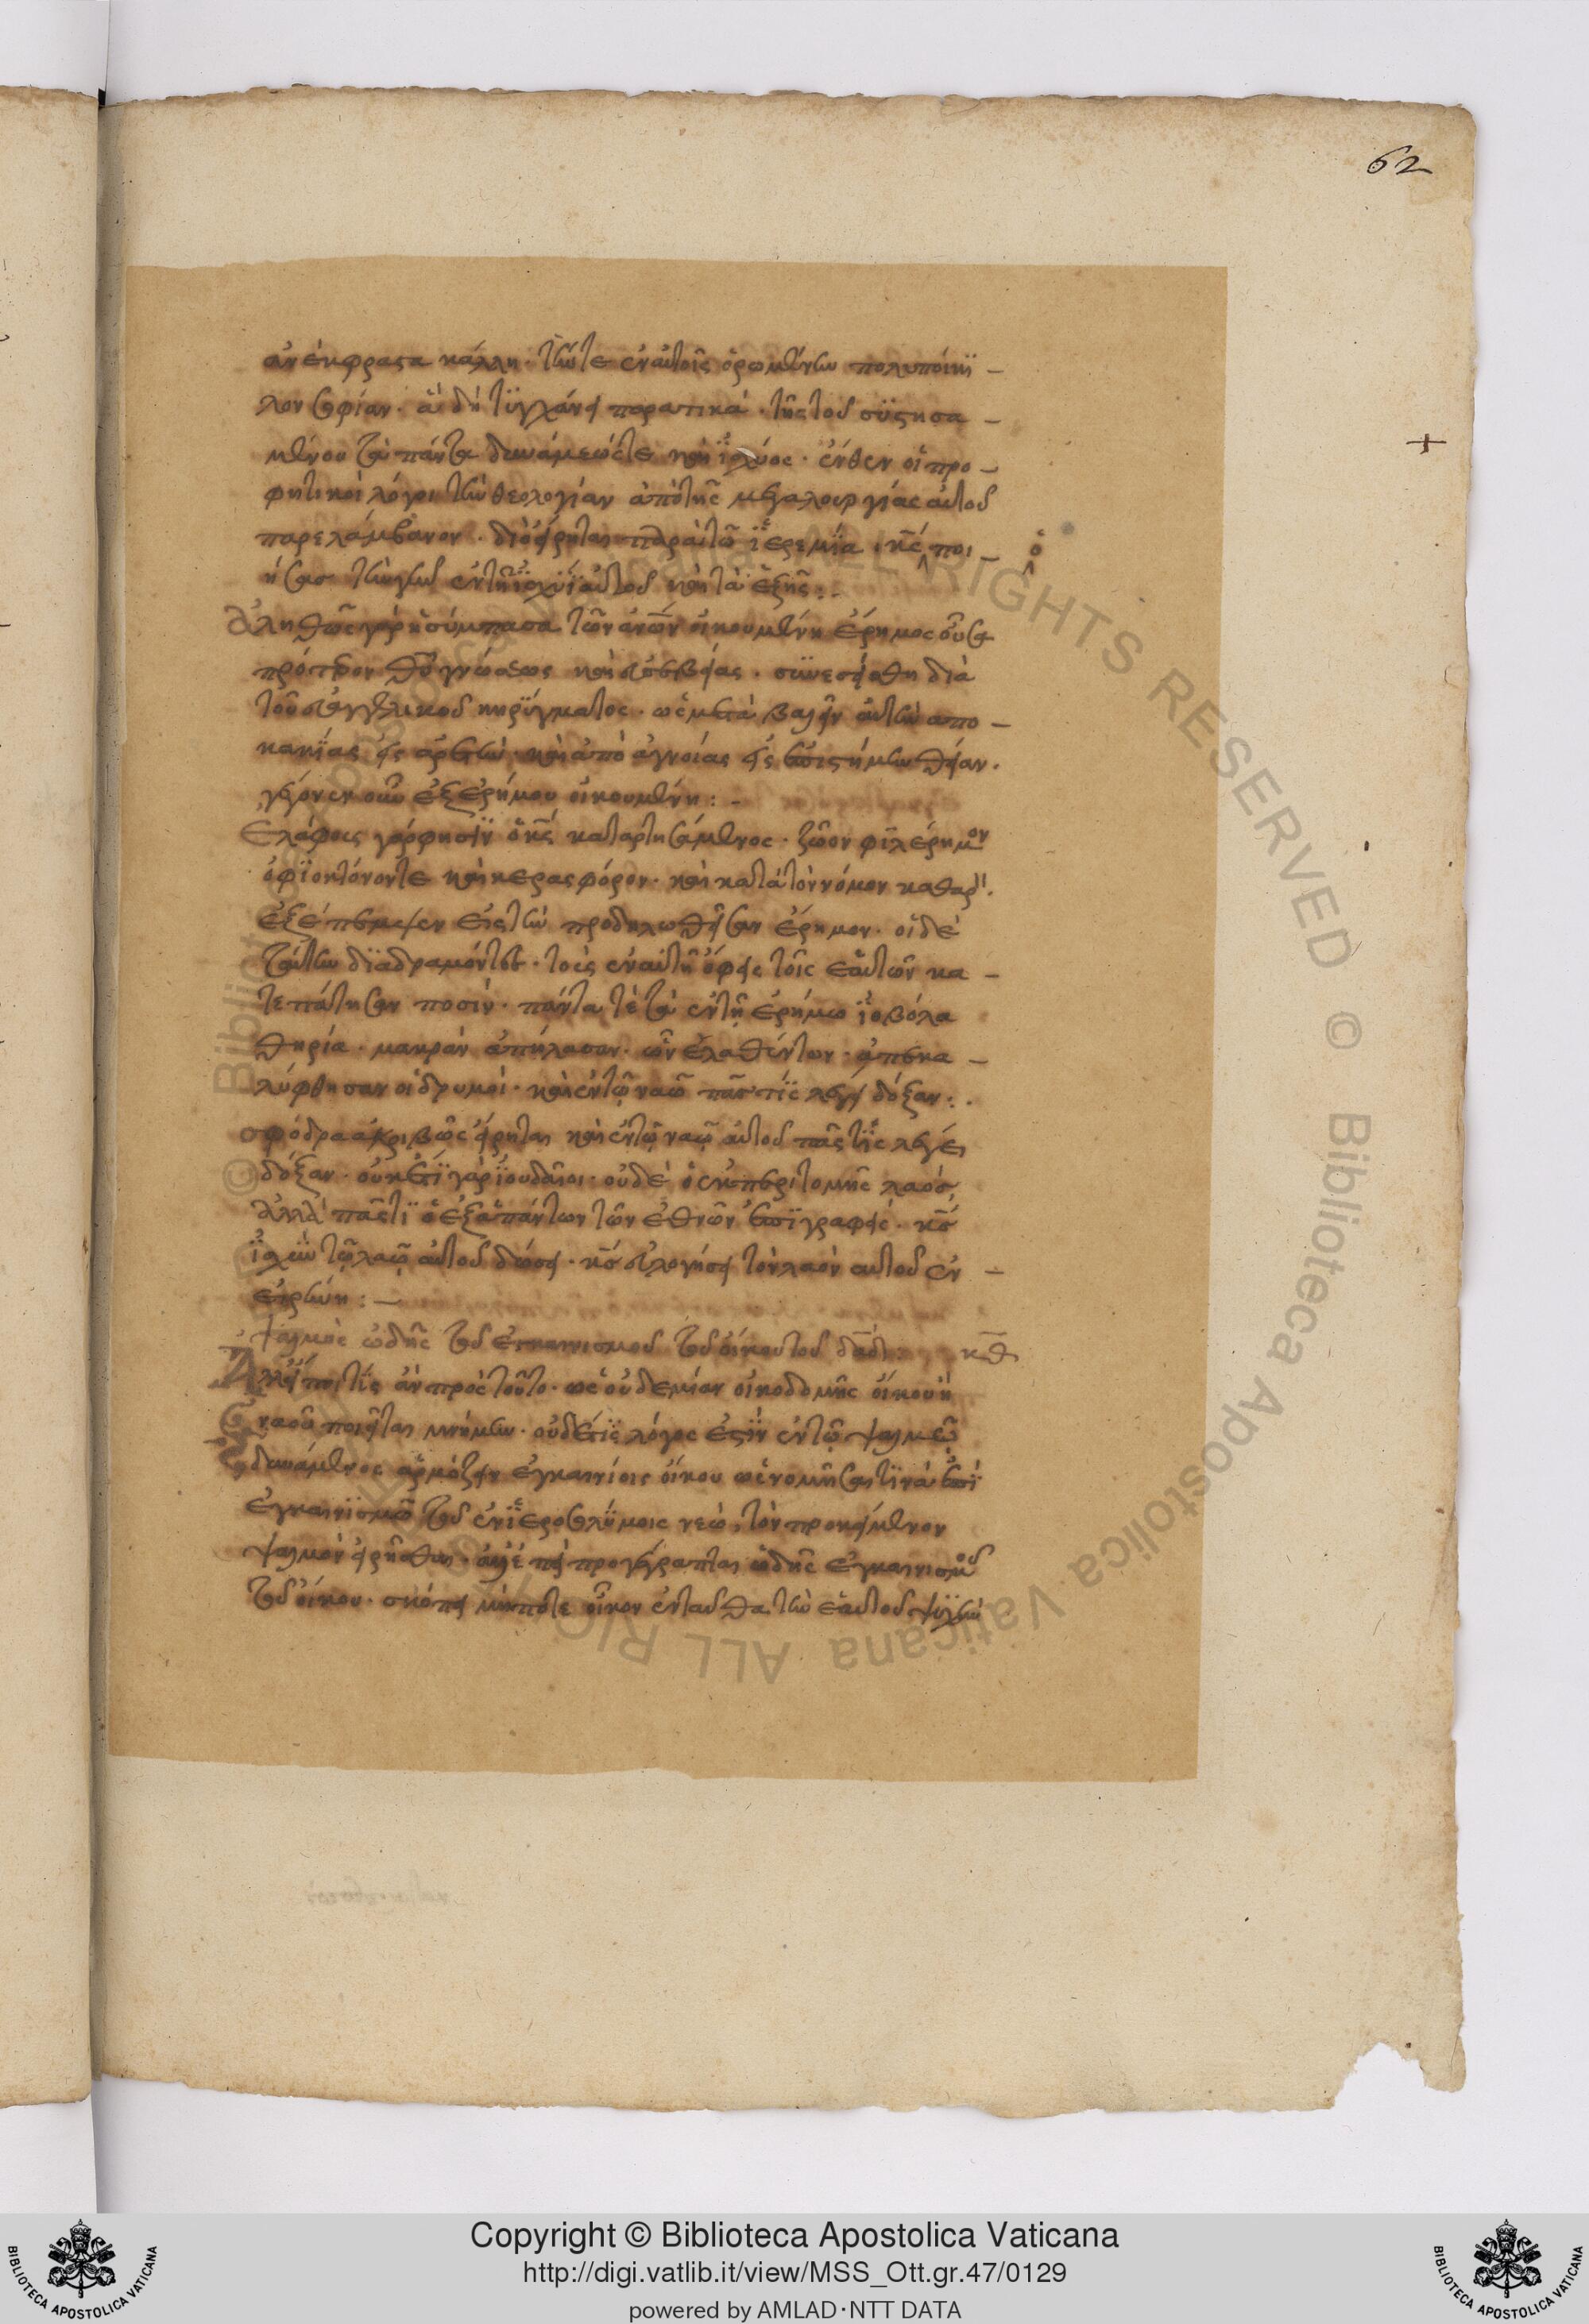 62
ἀνέκφραστα κάλλη· τήν τε ἐν αὐτοῖς ὁρωμένην πολυποίκι –
λον σοφίαν· ἃ δὴ τυγχάνει παρατικὰ· τῆς τοῦ συστησα –
μένου τὰ πάντα δυνάμεώς τε καὶ ἰσχύος· ἔνθεν οἱ προ –
φητικοὶ λόγοι τὴν θεολογίαν ἀπὸ τῆς μεγαλουργίας αὐτοῦ
παρελάμβανον· διὸ εἴρηται παρὰ τῶ ἱερεμία· κ̅ς̅ ποι – ὁ
ήσας τὴν γῆν ἐν τῆ ἰσχύϊ αὐτοῦ καὶ τὰ ἑξῆς:.
Ἀληθῶς γὰρ ἡ σύμπασα τῶν ἀν̅ω̅ν οἰκουμένη ἔρημος οὖσα
πρότερον θ̅υ̅ γνώσεως καὶ εὐσεβείας· συνεσείσθη διὰ
τοῦ εὐαγγελικοῦ κηρύγματος· ὡς μεταβαλεῖν αὐτὴν ἀπο –
κακίας εἰς ἀρετὴν· καὶ ἀπὸ ἀγνοίας εἰς ἐπιστήμην θείαν·
γέγονεν οὖν ἐξ ἐρήμου οἰκουμένη:–
Ελάφοις γάρ φησὶν ὁ κ̅ς̅ καταρτησάμενος· ζῶον φιλέρημον
ὀφιοκτόνον τε καὶ κερασφόρον· καὶ κατὰ τὸν νόμον καθαρὸ·
ἐξέπεμψεν εἰς τὴν προδηλωθεῖσαν ἔρημον· οἱ δὲ
ταύτην διαδραμόντες· τοὺς ἐν αὐτῆ ὄφεις τοῖς ἑαυτῶν κα –
τεπάτησαν ποσίν· πάντα τὲ τὰ ἐν τῆ ἐρήμω ἰοβόλα
θηρία· μακρὰν ἀπήλασαν· ὧν ἐλαθέντων· ἀπεκα –
λύφθησαν οἱ δρυμοὶ· καὶ ἐν τῶ ναῶ πᾶς τίς λέγει δόξαν:.
σφόδρα ἀκριβῶς εἴρηται καὶ ἐν τῶ ναῶ αὐτοῦ πᾶς τὶς λέγει
δόξαν· οὐκέτι γὰρ ἰουδαῖοι· οὐδὲ ὁ ἐκ περιτομῆς λαὸς,
ἀλλὰ πᾶς τὶ ὁ ἐξ ἁπάντων τῶν ἐθνῶν ἐπιγραφεὶς· κ̅ς̅
ἰσχὺν τῶ λαῶ αὐτοῦ δώσει· κ̅ς̅ εὐλογήσει τὸν λαὸν αὐτοῦ ἐν –
εἰρήνη:–
ψαλμὸς ὠδῆς τοῦ ἐγκαινισμοῦ τοῦ οἴκου τοῦ δ̅α̅δ̅: κ̅θ̅
Ἀλλ' εἴποι τίς ἂν πρὸς τοῦτο· ὡς οὐδεμίαν οἰκοδομῆς οἴκου ἢ
ναοῦ ποιεῖται μνήμην· οὐδέ τις λόγος ἐστὶν ἐν τῶ ψαλμῶ
δυνάμενος ἁρμόζειν ἐγκαινίοις οἴκου ὡς νομῆσαι τινὰ ἐπὶ
ἐγκαινισμῶ τοῦ ἐν ἱεροσολύμοις νεὼ, τὸν προκείμενον
ψαλμὸν εἰρῆσθαι· ἀλλ' ἐπεὶ προγέγραπται ὠδῆς ἐγκαινισμοῦ
τοῦ οἴκου· σκόπει μήποτε οἶκον ἐνταῦθα τὴν ἑαυτοῦ ψυχὴν
Copyright © Biblioteca Apostolica Vaticana
http://digi.vatlib.it/view/MSS_Ott.gr.47/0129
powered by AMLAD·NTT DATA
BIBLIOTECA APOSTOLICA VATICANA
BIBLIOTECA APOSTOLICA VATICANA
© Biblioteca Apostolica Vaticana ALL RIGHTS RESERVED © Biblioteca Apostolica Vaticana ALL RIGHTS RESERVED